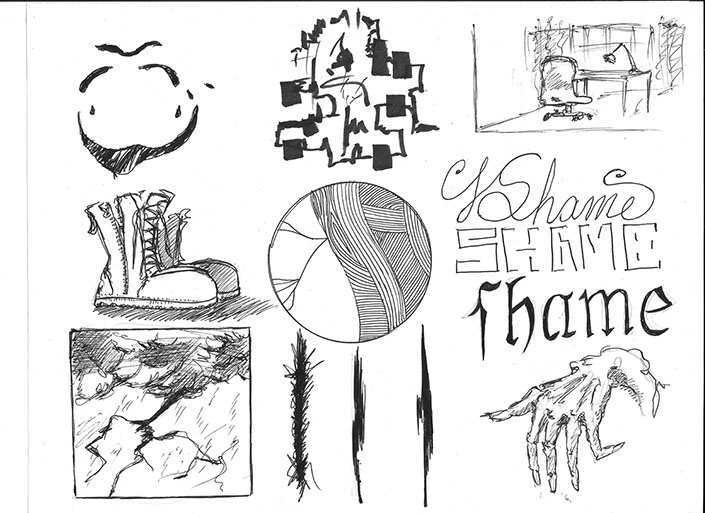 Shame
SHAME
ſhame